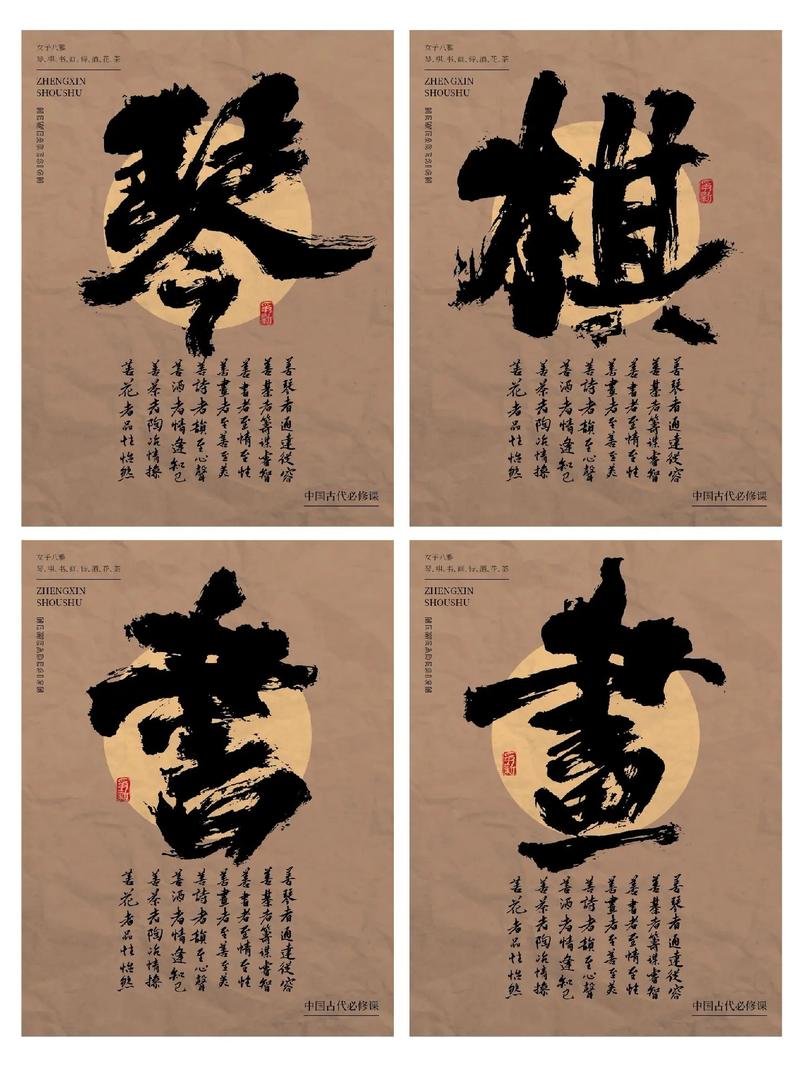 女子八雅
琴,棋,书,画,诗,酒,花,茶
ZHENGXIN
SHOUSHU
琴
善琴者通達從容
善棊者籌謀睿智
善書者至情至性
善畫者至善至美
善詩者韻至心聲
善酒者情逢知己
善茶者陶冶情操
善花者品性怡然
中国古代必修课
女子八雅
琴,棋,书,画,诗,酒,花,茶
ZHENGXIN
SHOUSHU
棋
善琴者通達從容
善棊者籌謀睿智
善書者至情至性
善畫者至善至美
善詩者韻至心聲
善酒者情逢知己
善茶者陶冶情操
善花者品性怡然
中国古代必修课
女子八雅
琴,棋,书,画,诗,酒,花,茶
ZHENGXIN
SHOUSHU
書
善琴者通達從容
善棊者籌謀睿智
善書者至情至性
善畫者至善至美
善詩者韻至心聲
善酒者情逢知己
善茶者陶冶情操
善花者品性怡然
中国古代必修课
女子八雅
琴,棋,书,画,诗,酒,花,茶
ZHENGXIN
SHOUSHU
畫
善琴者通達從容
善棊者籌謀睿智
善書者至情至性
善畫者至善至美
善詩者韻至心聲
善酒者情逢知己
善茶者陶冶情操
善花者品性怡然
中国古代必修课